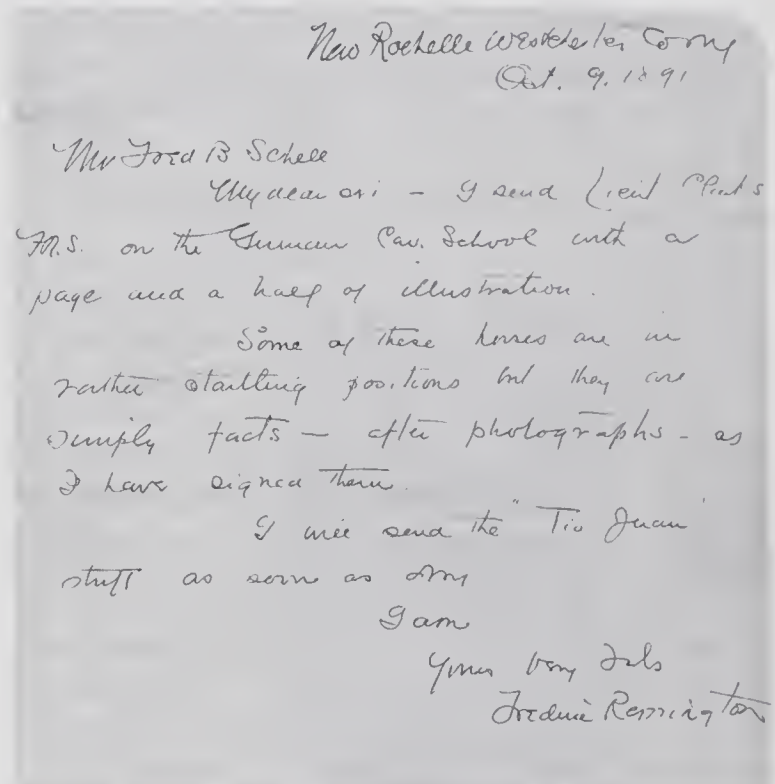 New Rochelle Westchester Co NY
Oct. 9. 1891
Mr Fred B Schell
My dear sir – I send Lieut
M.S. on the German Cav. School with a
page and a half of illustration.
Some of these horses are in
rather startling positions but they are
simply facts – after photographs – as
I have signed them.
I will send the "Tio Juan"
stuff as soon as dry
I am
Yours very
Frederic Remington